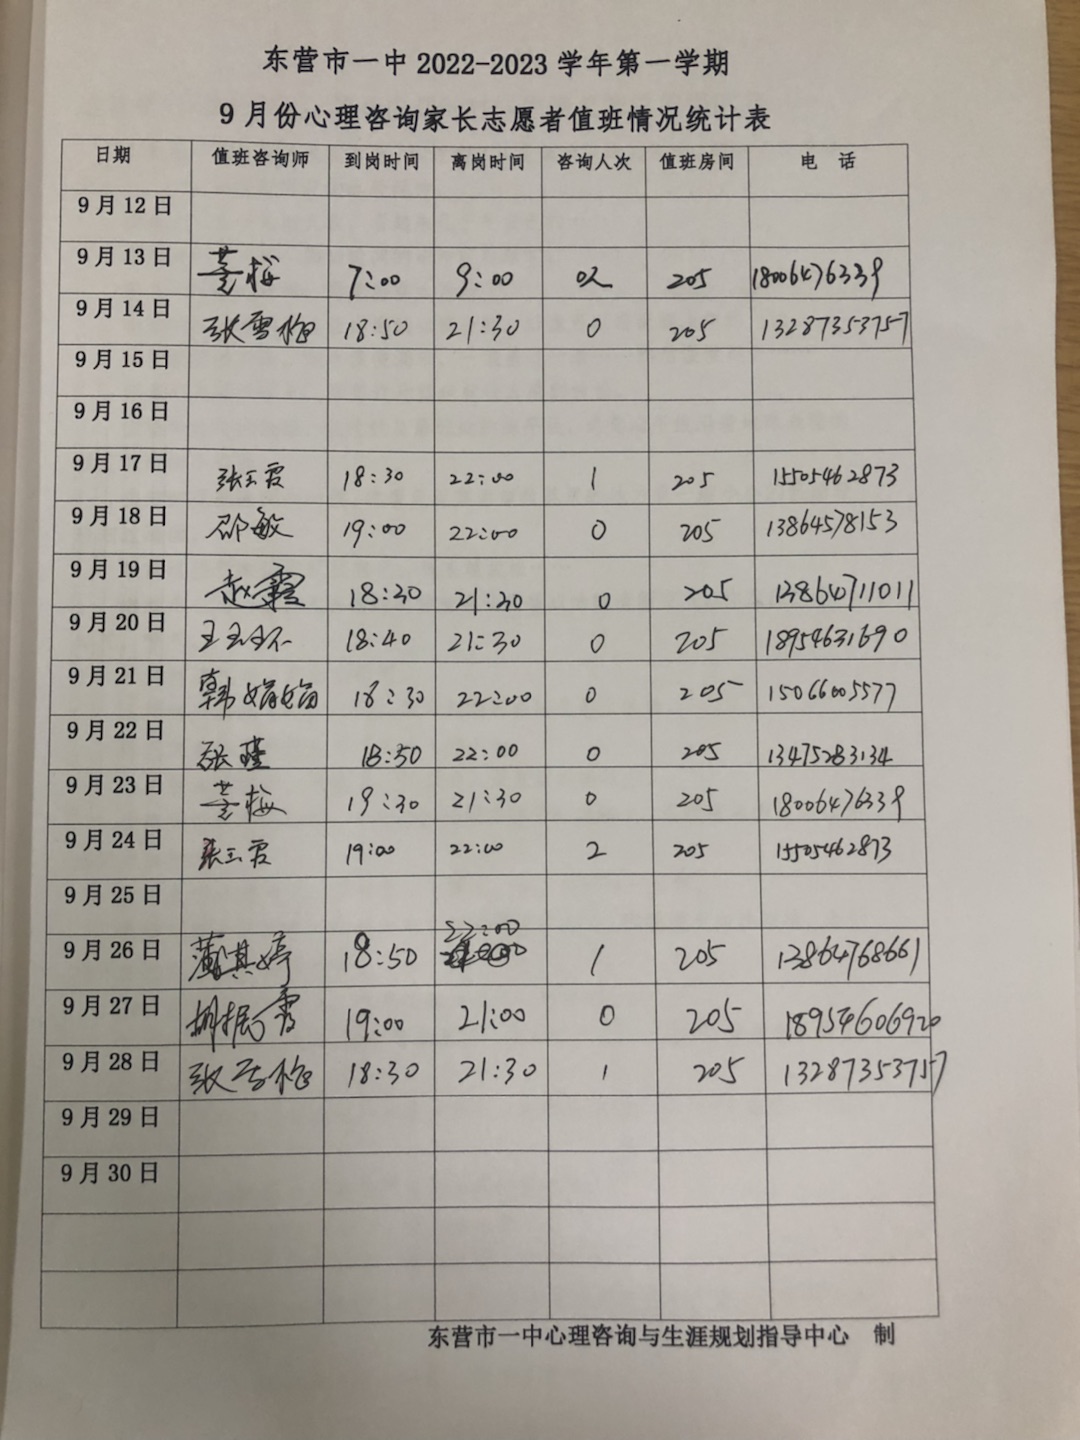 东营市一中 2022-2023 学年第一学期
9 月份心理咨询家长志愿者值班情况统计表
日期 值班咨询师 到岗时间 离岗时间 咨询人次 值班房间 电 话
9 月 12 日
9 月 13 日 梅 7:00 9:00 0人 205 18006476339
9 月 14 日 张雪梅 18:50 21:30 0 205 13287353757
9 月 15 日
9 月 16 日
9 月 17 日 张玉霞 18:30 22:00 1 205 15505462873
9 月 18 日 邵敏 19:00 22:00 0 205 13864578153
9 月 19 日 赵霞 18:30 21:30 0 205 13864711011
9 月 20 日 王玉环 18:40 21:30 0 205 18954631690
9 月 21 日 韩娟娟 18:30 22:00 0 205 15066005577
9 月 22 日 张瑾 18:50 22:00 0 205 13475283134
9 月 23 日 梅 19:30 21:30 0 205 18006476339
9 月 24 日 张玉霞 19:00 22:00 2 205 15505462873
9 月 25 日
9 月 26 日 薄淇婷 18:50 22:00 1 205 13864768661
9 月 27 日 胡振秀 19:00 21:00 0 205 18954606920
9 月 28 日 张雪梅 18:30 21:30 1 205 13287353757
9 月 29 日
9 月 30 日
东营市一中心理咨询与生涯规划指导中心 制